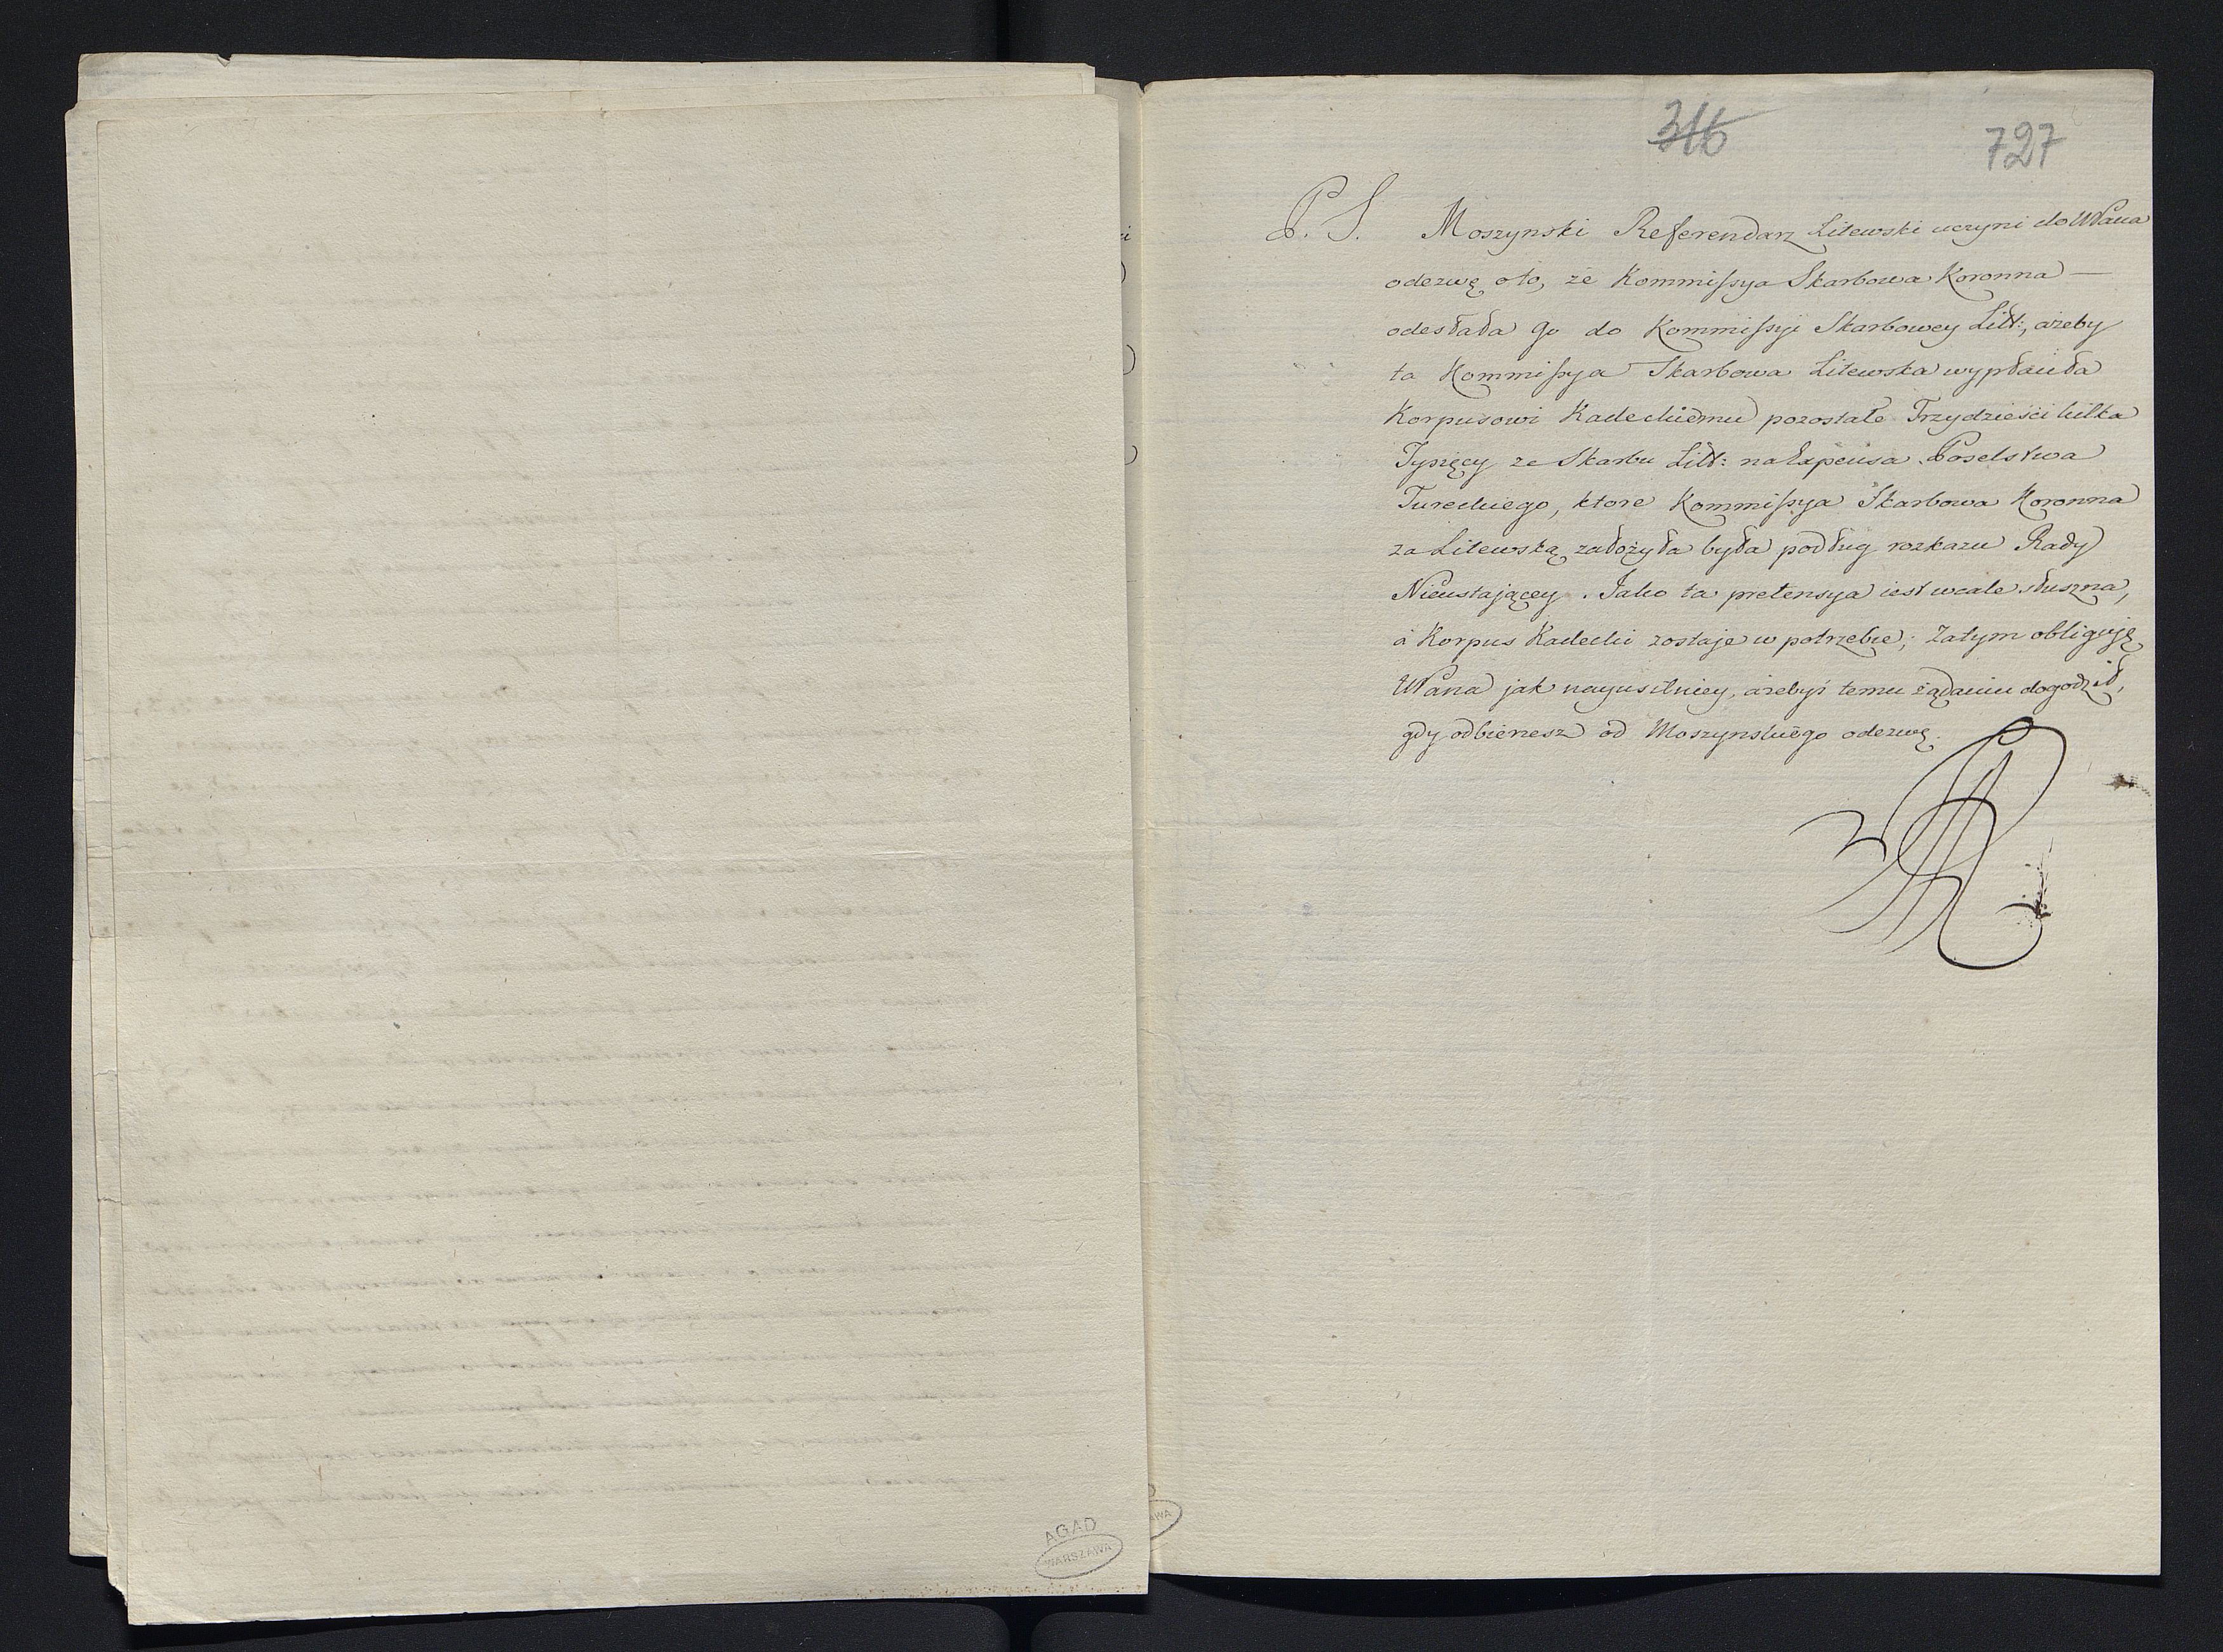 316
727
P. S. Moszynski Referendarz Litewski uczyni do WPana
odezwę oto, że Kommissya Skarbowa Koronna —
odesłała go do Kommissyi Skarbowey Litt:, ażeby
ta Kommissya Skarbowa Litewska wypłaciła
Korpusowi Kadeckiemu pozostałe Trzydzieści kilka
Tysięcy ze Skarbu Litt: na Expensa Poselstwa
Tureckiego, ktore Kommissya Skarbowa Koronna
za Litewską założyła była podług rozkazu Rady
Nieustającey. Jako ta pretensya iest wcale słuszna,
a Korpus Kadecki zostaje w potrzebie; Zatym obliguję
WPana jak nayusilniey, ażebyś temu żądaniu dogodził,
gdy odbierzesz od Moszynskiego odezwę.
AGAD
WARSZAWA